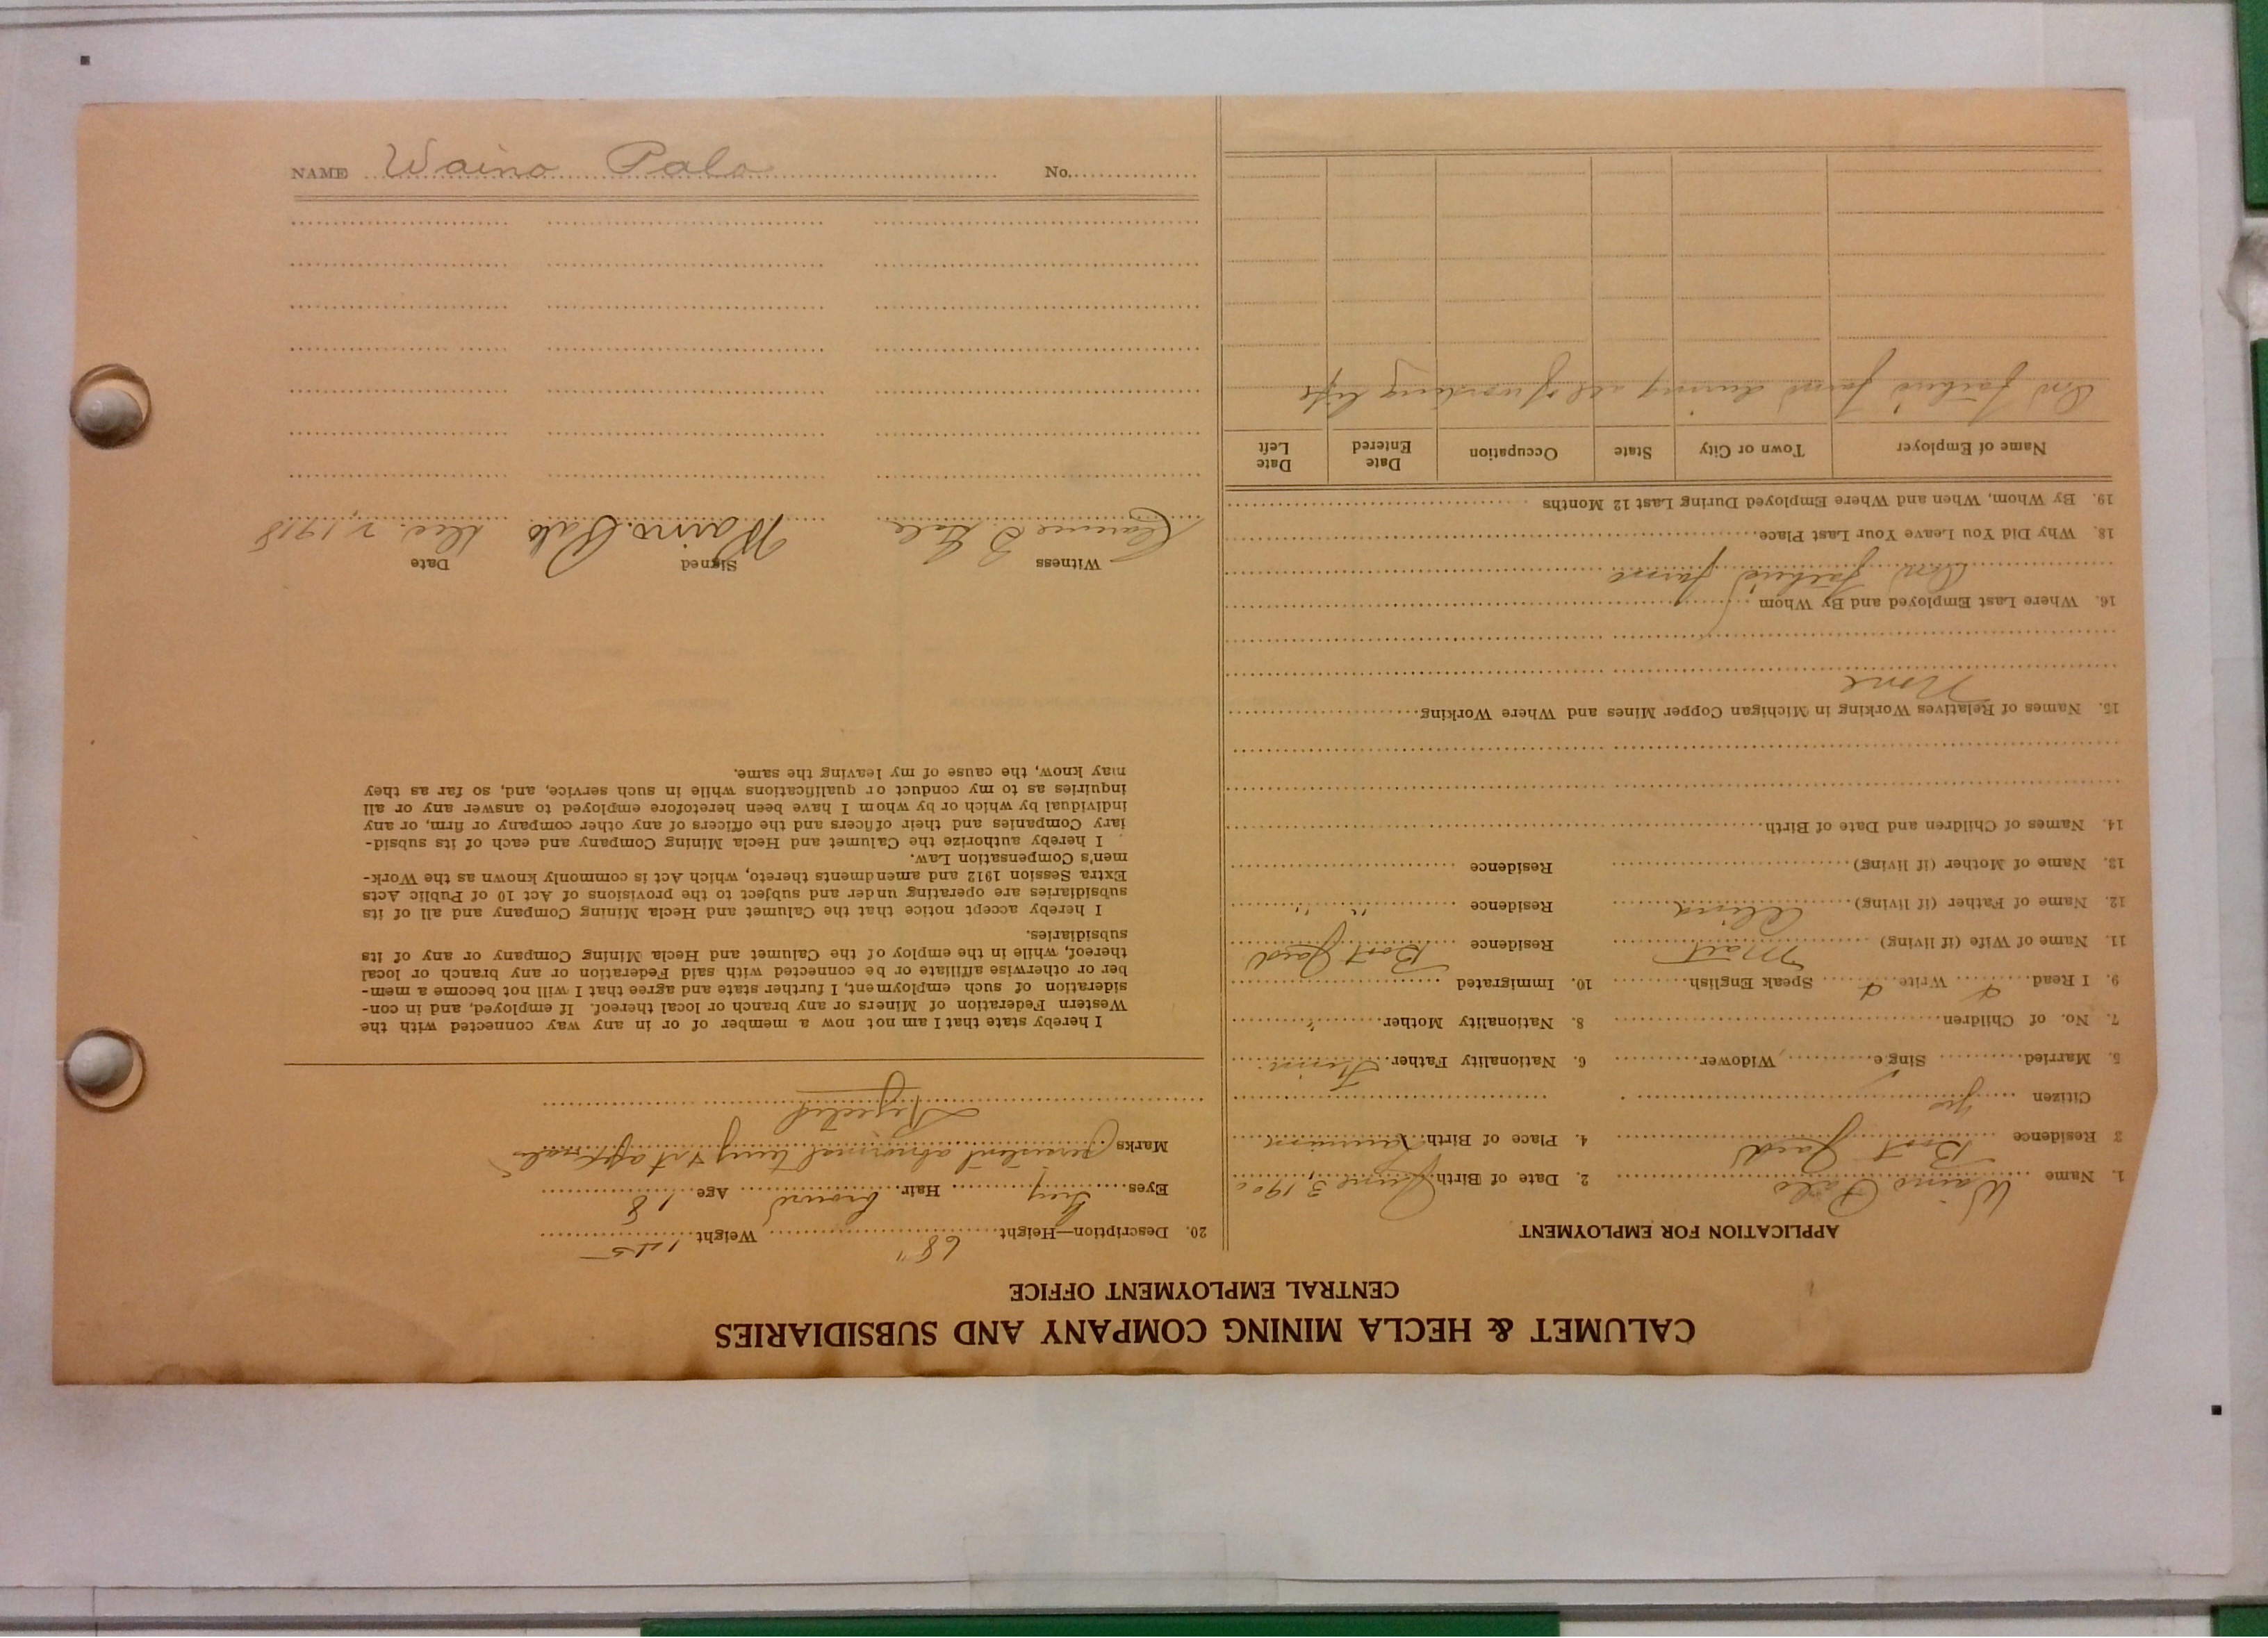 NAME Waino Palo No.
CALUMET & HECLA MINING COMPANY AND SUBSIDIARIES
CENTRAL EMPLOYMENT OFFICE
APPLICATION FOR EMPLOYMENT
1. Name Waino Palo 2. Date of Birth June 3, 1900
3 Residence Boot Jack 4. Place of Birth
Citizen Yes
5. Married Single , Widower 6. Nationality Father Finn.
7. No. of Children 8. Nationality Mother "
9. I Read Write Speak English 10. Immigrated
11. Name of Wife (if living) Residence Boot Jack
12. Name of Father (if living) Residence " "
13. Name of Mother (if living) Residence
14. Names of Children and Date of Birth
15. Names of Relatives Working in Michigan Copper Mines and Where Working
None
16. Where Last Employed and By Whom
On father's farm
18. Why Did You Leave Your Last Place
19. By Whom, When and Where Employed During Last 12 Months
Name of Employer Town or City State Occupation Date Entered Date Left
On father's farm during all of working life
20. Description—Height 68" Weight 145
Eyes Grey Hair brown Age 18
Marks abnormal lung
Rejected
I hereby state that I am not now a member of or in any way connected with the
Western Federation of Miners or any branch or local thereof. If employed, and in con-
sideration of such employment, I further state and agree that I will not become a mem-
ber or otherwise affiliate or be connected with said Federation or any branch or local
thereof, while in the employ of the Calumet and Hecla Mining Company or any of its
subsidiaries.
I hereby accept notice that the Calumet and Hecla Mining Company and all of its
subsidiaries are operating under and subject to the provisions of Act 10 of Public Acts
Extra Session 1912 and amendments thereto, which Act is commonly known as the Work-
men's Compensation Law.
I hereby authorize the Calumet and Hecla Mining Company and each of its subsid-
iary Companies and their officers and the officers of any other company or firm, or any
individual by which or by whom I have been heretofore employed to answer any or all
inquiries as to my conduct or qualifications while in such service, and, so far as they
may know, the cause of my leaving the same.
Witness Signed Date
Clarence Waino Palo Dec. 2, 1918